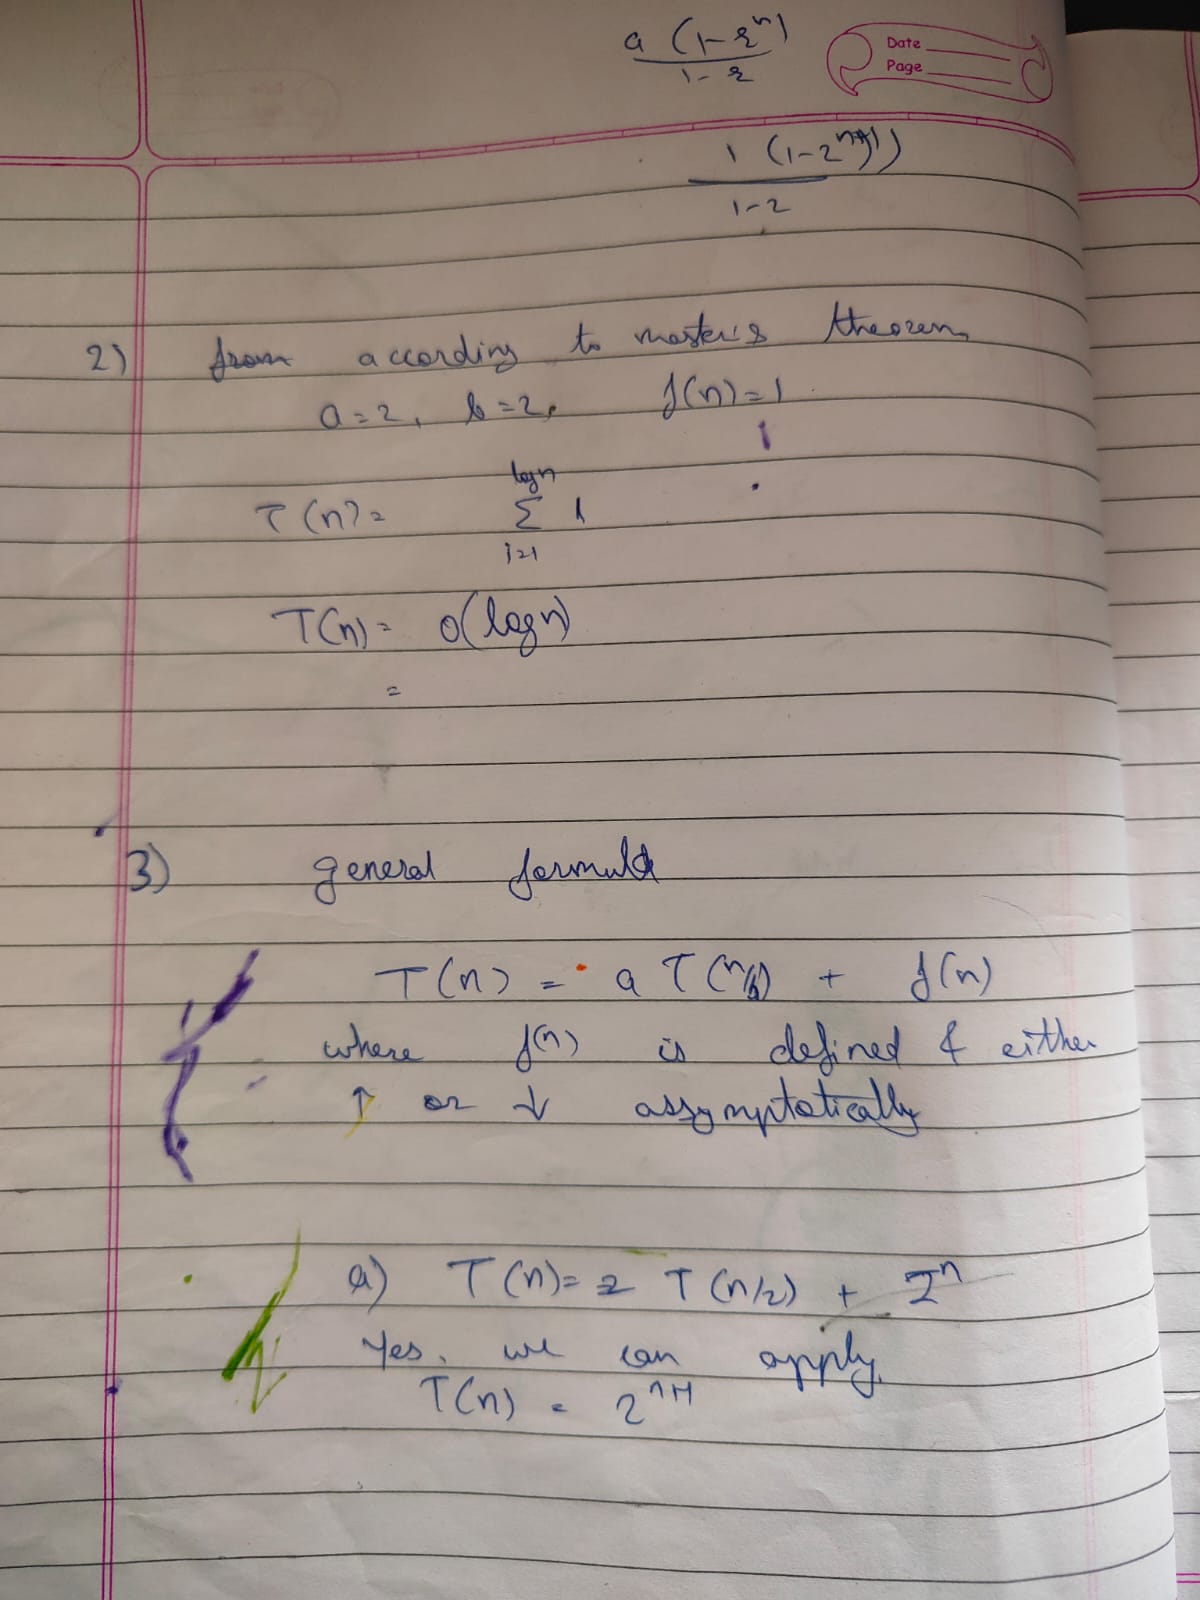 a (1-r^n)
1-r
Date
Page
1 (1-2^n+1))
1-2
2) from according to master's theorem
a=2, b=2, f(n)=1
T(n)= log n
Σ 1
i=1
T(n)= O(log n)
=
3) general formula
T(n) = a T(n/b) + f(n)
where f(n) is defined & either
↑ or ↓ assymptotically
a) T(n)= 2 T(n/2) + 2^n
Yes, we can apply.
T(n) = 2^n+1